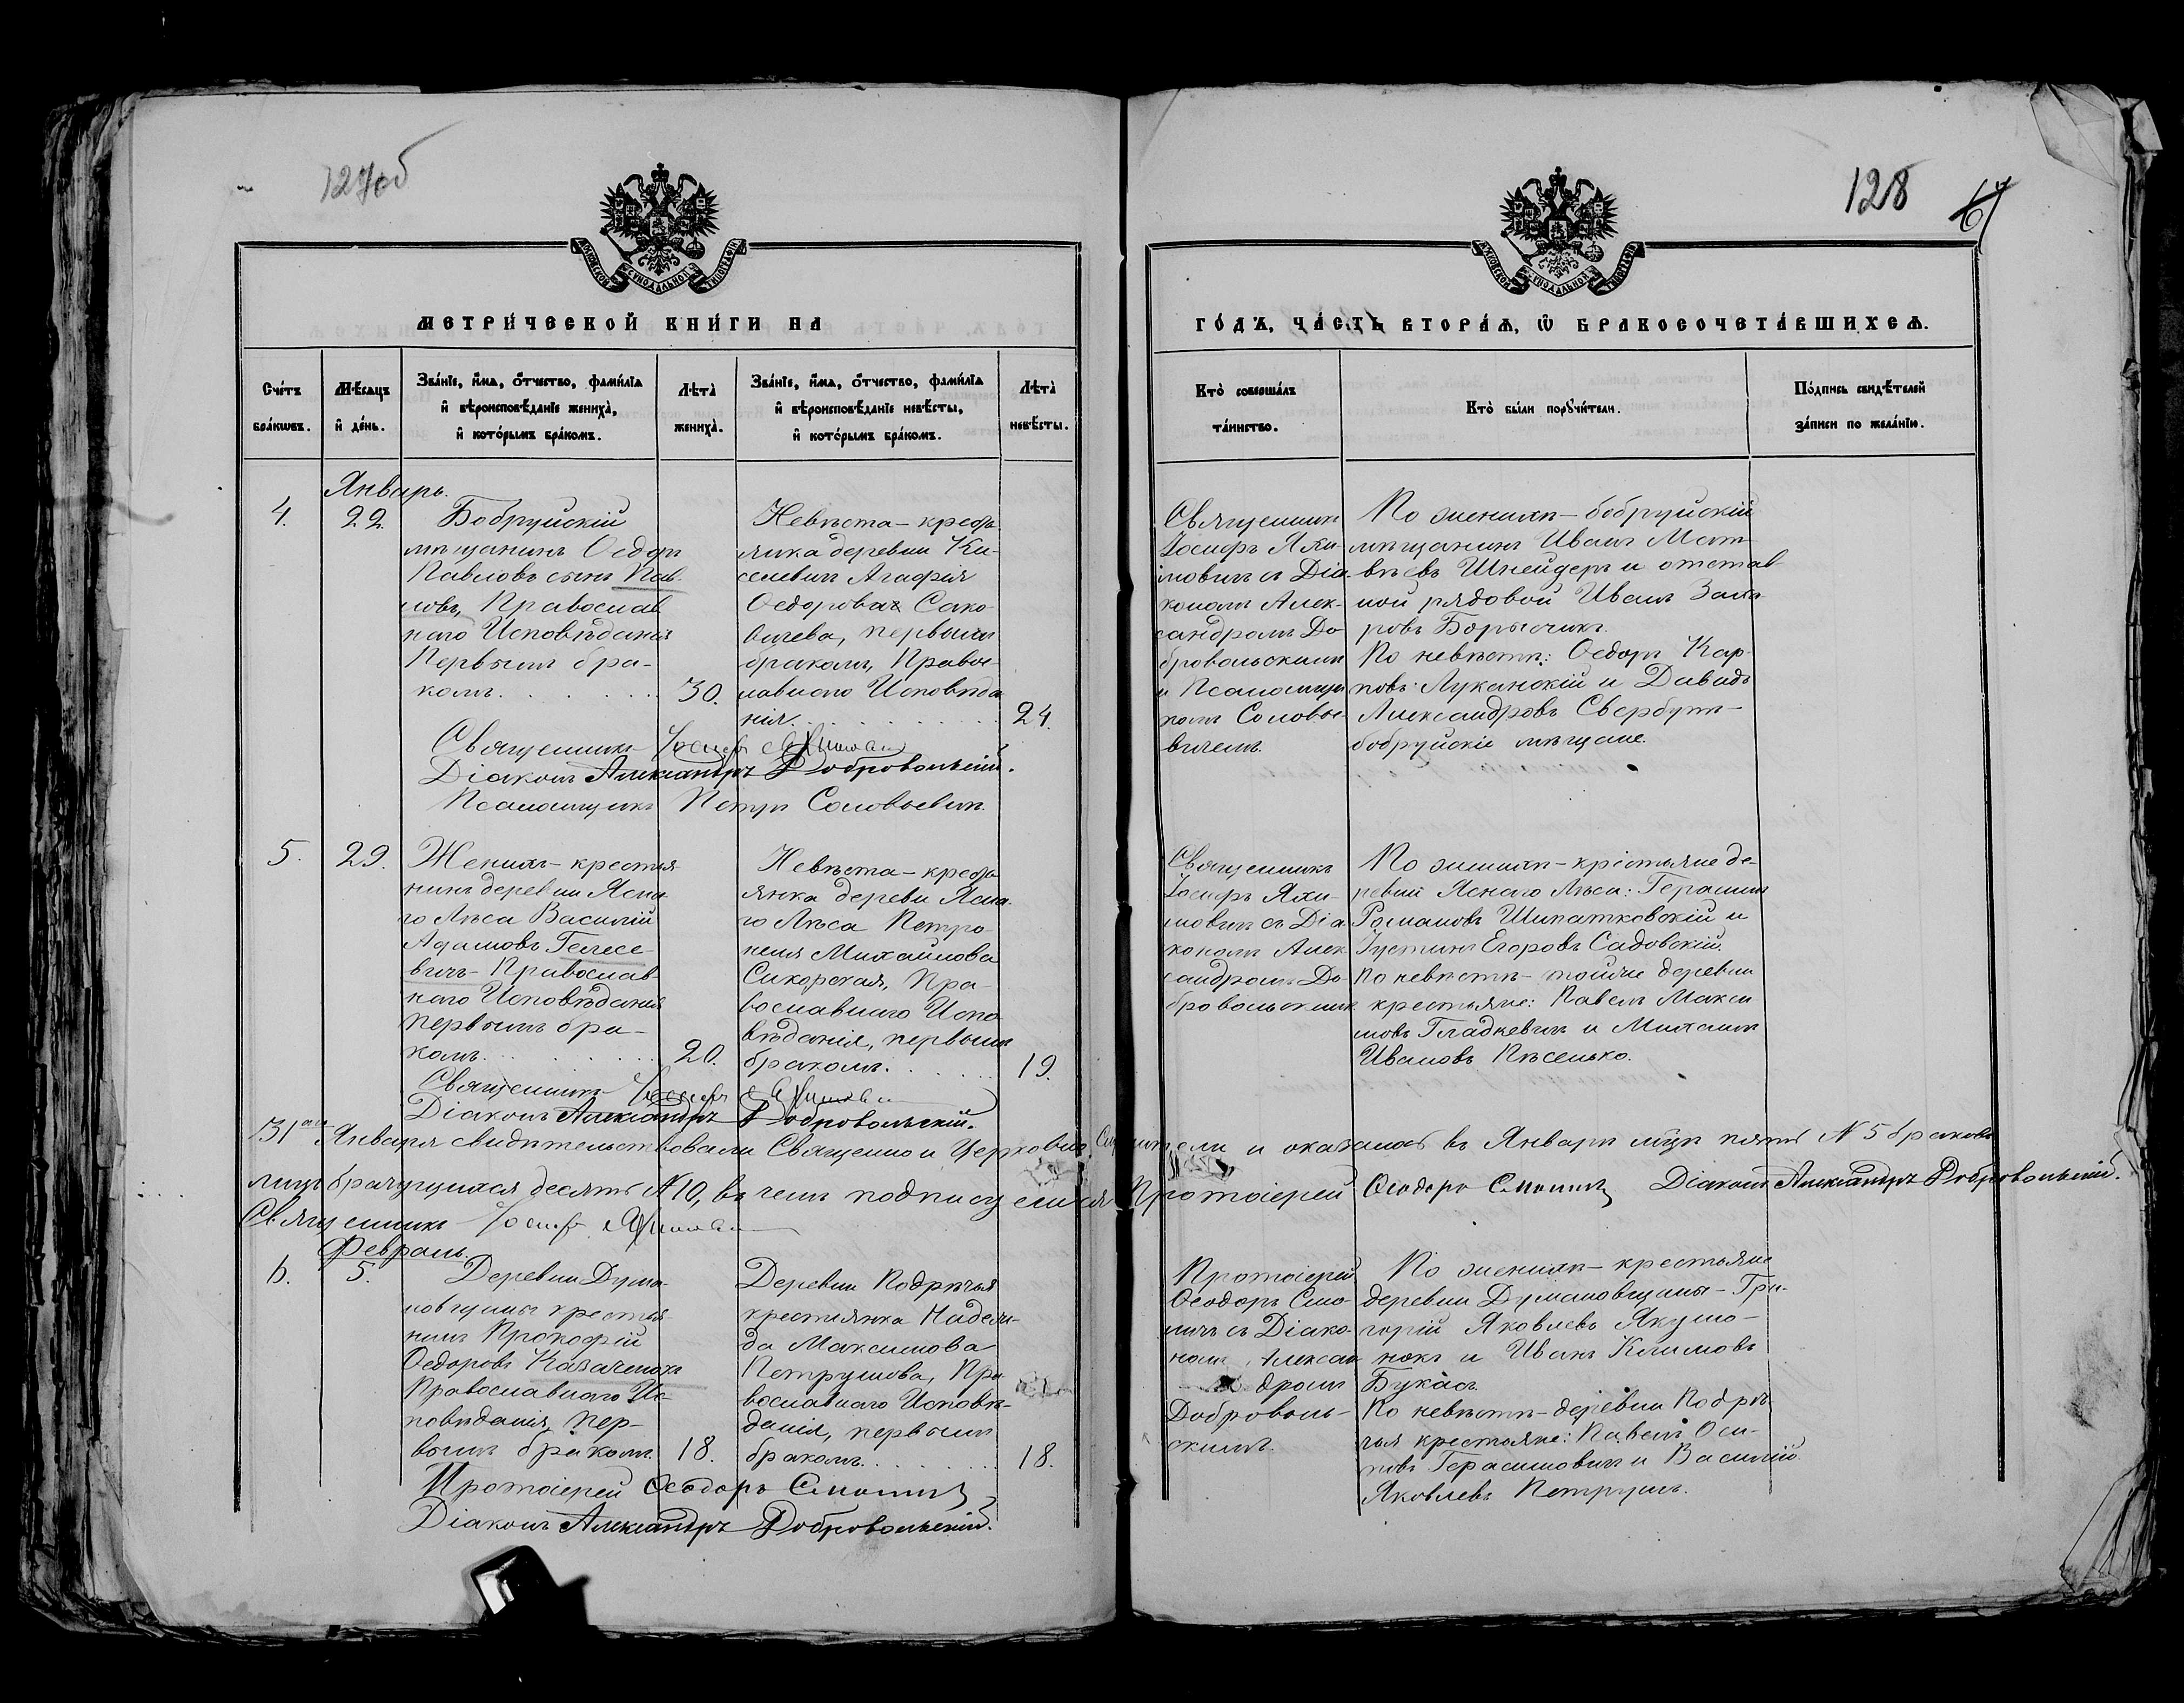 127об
128
МОСКОВСКОЙ СУНОДАЛЬНОЙ ТИПОГРАФІИ
МОСКОВСКОЙ СУНОДАЛЬНОЙ ТИПОГРАФІИ
МЕТРИ́ЧЕСКОЙ КНИ́ГИ НА
ГО́ДЪ, ЧА́СТЬ ВТОРА́Ѧ, Ѡ҆ БРАКОСОЧЕТА́ВШИХСѦ.
Сче́тъ
бра́кѡвъ.
Мѣ́сѧцъ
и҆ де́нь.
Зва́нїе, и҆́мѧ, ѻ҆́тчество, фами́лїѧ
и҆ вѣроисповѣ́данїе жениха̀,
и҆ кото́рымъ бра́комъ.
Лѣ́та̀
жениха̀.
Зва́нїе, и҆́мѧ, ѻ҆́тчество, фами́лїѧ
и҆ вѣроисповѣ́данїе невѣ́сты,
и҆ кото́рымъ бра́комъ.
Лѣ́та̀
невѣ́сты.
Кто̀ соверша́лъ
та́инство.
Кто̀ бы́ли порꙋчи́тели.
По́дпись свидѣ́телей
за́писи по жела́нїю.
Январь.
4.
22
Бобруйскій
мѣщанинъ Ѳедоръ
Павловъ сынъ Пав-
ловъ, Православ
наго Исповѣданія
Первымъ бра-
комъ.
30.
Невѣста – кресть
янка деревни Ки-
селевичъ Агафія
Ѳедорова Сако-
вичева, первымъ
бракомъ, Правос-
лавнаго Исповѣда
нія.
24.
Священникъ
Іосифъ Яхи-
мовичъ съ Діа-
кономъ Алек-
сандромъ До-
бровольскимъ
и Псаломщи
комъ Соловье-
вичемъ.
По женихѣ – бобруйскій
мѣщанинъ Иванъ Мат-
вѣевъ Шнейдеръ и отстав
ной рядовой Иванъ Заха-
ровъ Борысчикъ.
По невѣстѣ: Ѳедоръ Кар-
повъ Луканскій и Давидъ
Александровъ Свербутъ –
бобруйскіе мѣщане.
Священникъ Іосифъ Яхимовичъ
Діаконъ Александръ Добровольскій.
Псаломщикъ Петръ Соловьевичъ.
5.
29.
Женихъ – крестья
нинъ деревни Ясна-
го Лѣса Василій
Адамовъ Гелесе-
вичъ – Православ-
наго Исповѣданія
первымъ бра-
комъ.
20.
Невѣста – кресть
янка деревни Ясна-
го Лѣса Петро-
неля Михайлова
Сикорская, Пра-
вославнаго Испо-
вѣданія, первымъ
бракомъ.
19.
Священникъ
Іосифъ Яхи-
мовичъ съ Діа
кономъ Алек-
сандромъ До-
бровольскимъ.
По женихѣ – крестьяне де-
ревни Яснаго Лѣса: Герасимъ
Романовъ Шипатковскій и
Іустинъ Егоровъ Садовскій.
По невѣстѣ – тойже деревни
крестьяне: Павелъ Макси
мовъ Гладкевичъ и Михаилъ
Ивановъ Пѣсенько.
Священникъ Іосифъ Яхимовичъ
Діаконъ Александръ Добровольскій.
31го Января свидѣтельствовали Священно и Церковно Служители и оказалось въ Январѣ мцѣ пять N 5 браковъ
лицъ брачущихся десять N 10, въ чемъ подписуемся Протоіерей Ѳеодоръ Смоличъ Діаконъ Александръ Добровольскій.
Священникъ Іосифъ Яхимовичъ
Февраль.
6.
5.
Деревни Дума-
новщины крестья
нинъ Прокофій
Ѳедоровъ Казаченокъ
Православнаго Ис-
повѣданія, пер-
вымъ бракомъ.
18.
Деревни Подрѣчья
крестьянка Надеж-
да Максимова
Петрушова, Пра
вославнаго Исповѣ-
данія, первымъ
бракомъ.
18.
Протоіерей
Ѳеодоръ Смо-
личъ съ Діако-
номъ Алексан
дромъ
Доброволь-
скимъ.
По женихѣ – крестьяне
деревни Думановщины – Гри-
горій Яковлевъ Якимо-
нокъ и Иванъ Климовъ
Букасъ.
По невѣстѣ – деревни Подрѣ-
чья крестьяне: Павелъ Оси-
повъ Герасимовичъ и Василій
Яковлевъ Петрушъ.
Протоіерей Ѳеодоръ Смоличъ
Діаконъ Александръ Добровольскій.